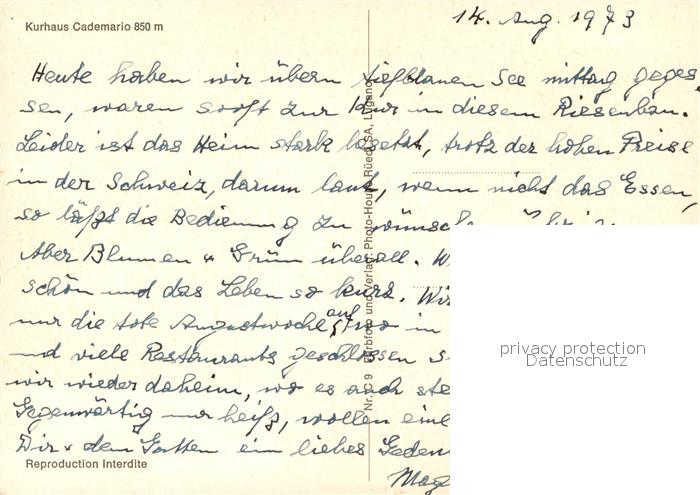 Kurhaus Cademario 850 m
14. Aug. 1973
Heute haben wir übern tiefblauen See mittag geges-
sen, waren so oft zur Kur in diesem Riesenbau.
Leider ist das Heim stark besetzt, trotz der hohen Preise
in der Schweiz, darum laut, wenn nicht das Essen,
so läßt die Bedienung zu wünschen übrig.
Aber Blumen & Grün überall. W
schön und das Leben so kurz. Wir
nur die tote Augustwoche auf, wo in
und viele Restaurants geschlossen s
wir wieder daheim, wo es auch ste
Gegenwärtig nur heiß, wollen eine
Dir & dem Gatten ein liebes Geden
Mag
Reproduction Interdite
Nr. C 9 Farbfoto und Verlag: Photo-House Rüedi SA, Lugano
privacy protection
Datenschutz